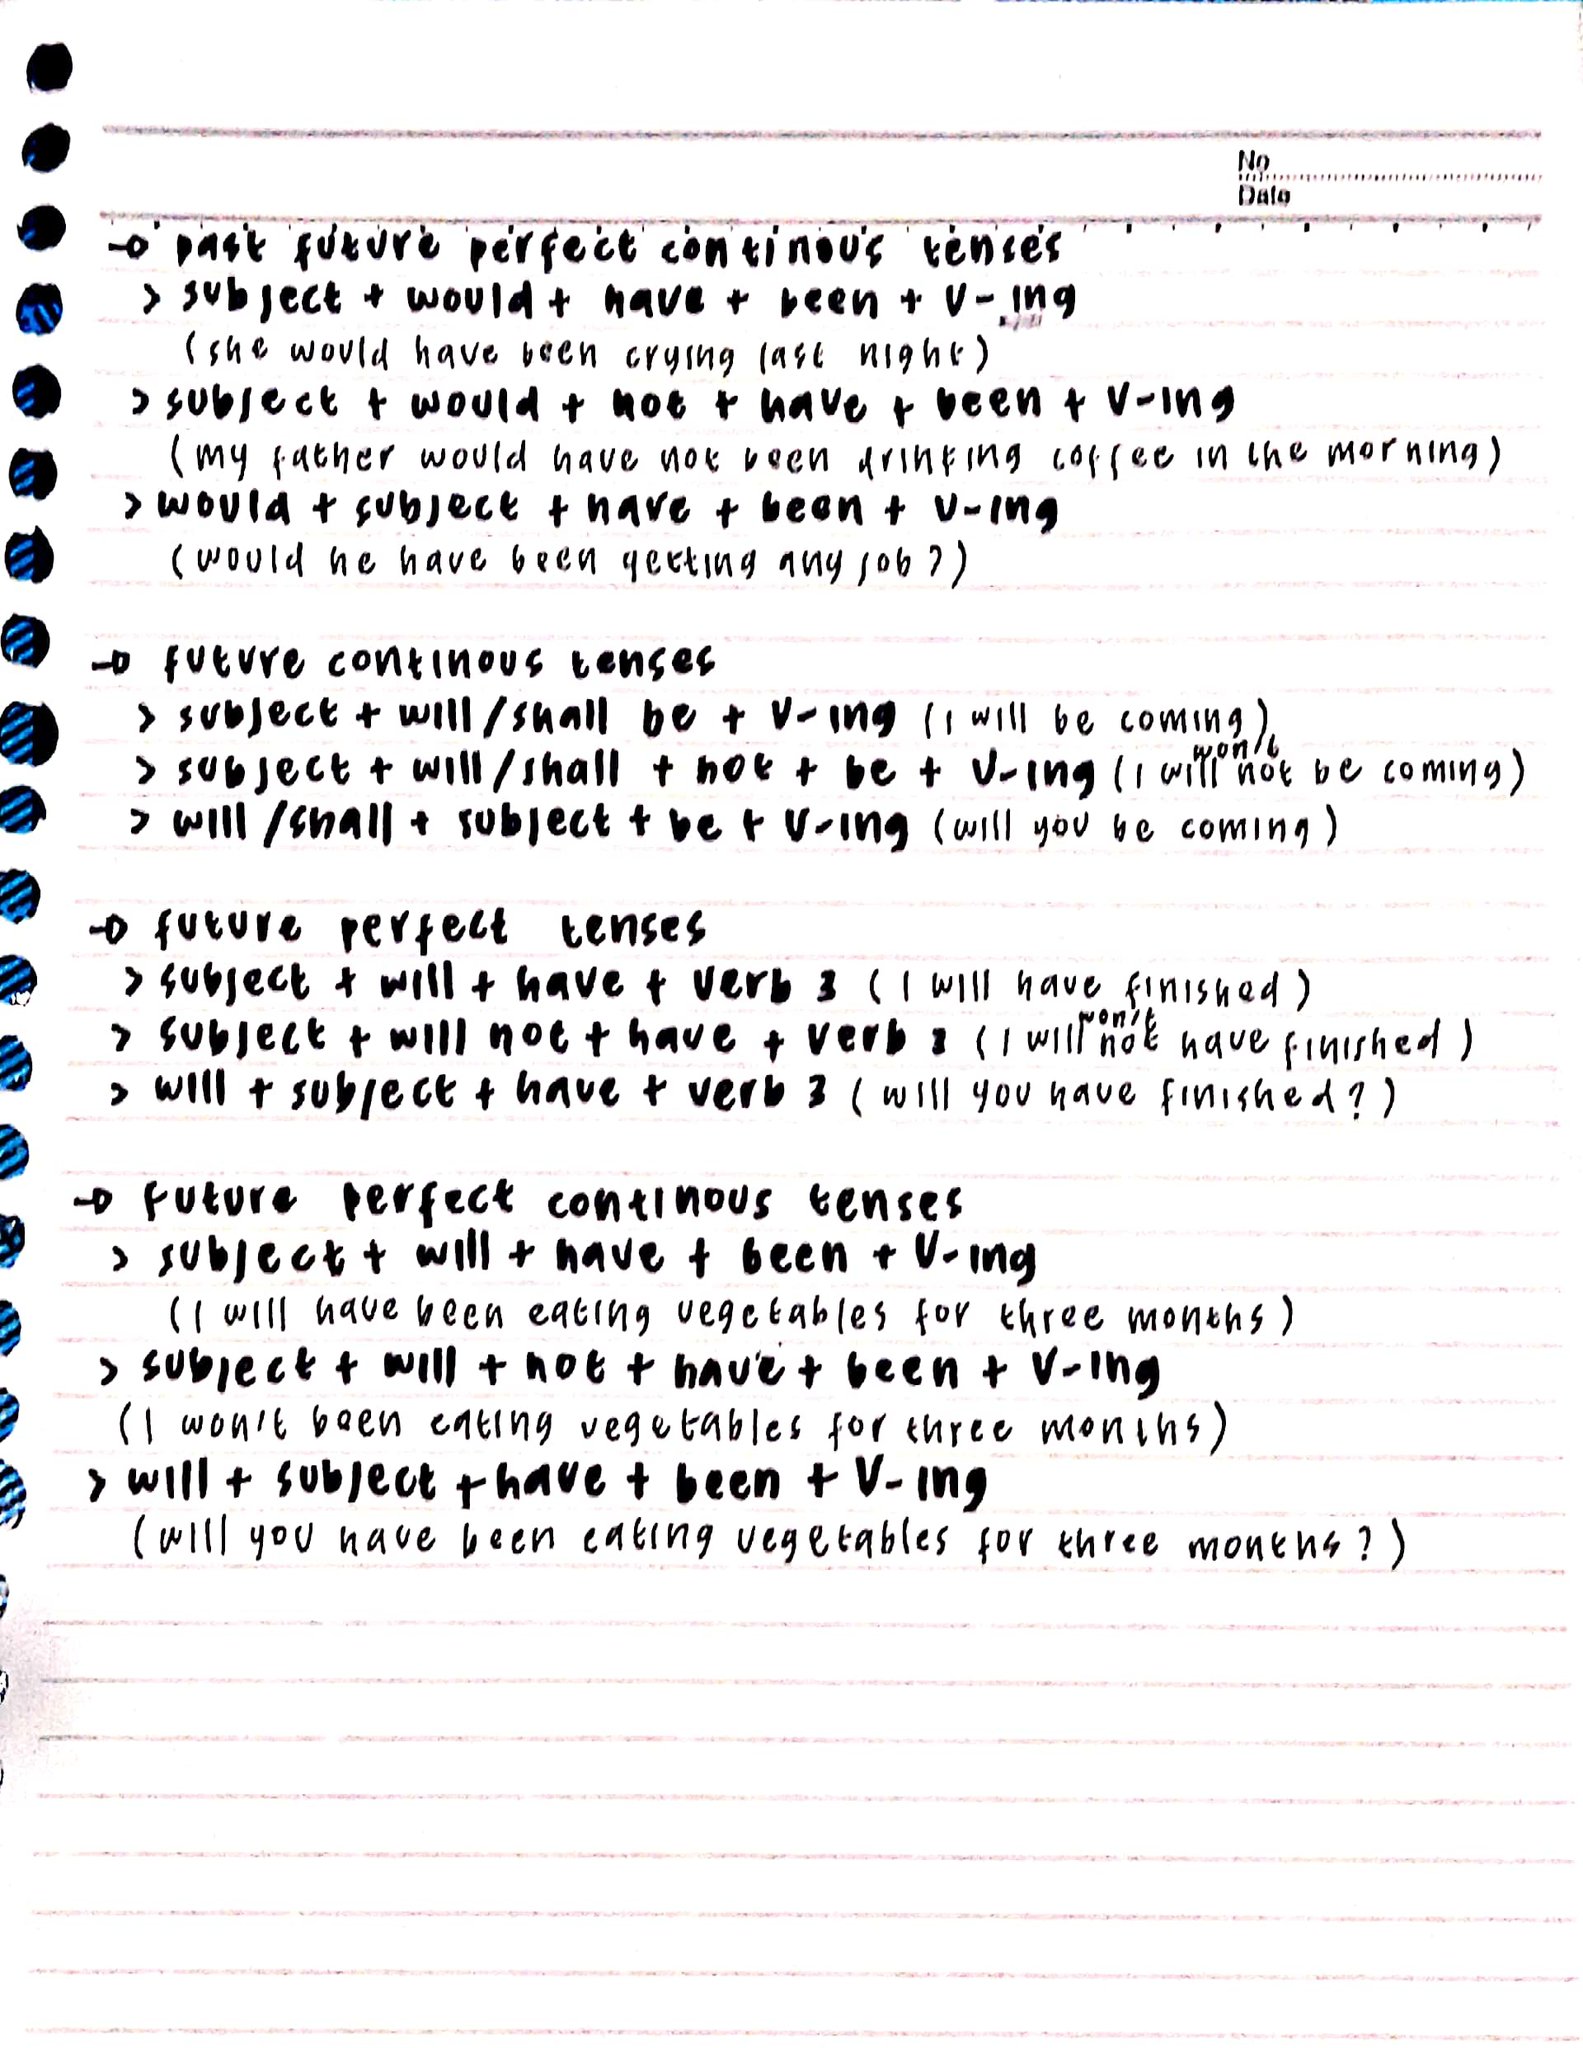 No
Date
→ past future perfect continous tenses
> subject + would + have + been + V-ing
(she would have been crying last night)
> subject + would + not + have + been + V-ing
(my father would have not been drinking coffee in the morning)
> would + subject + have + been + V-ing
(would he have been getting any job?)
→ future continous tenses
> subject + will/shall be + V-ing (I will be coming)
won't
> subject + will/shall + not + be + V-ing (I will not be coming)
> will/shall + subject + be + V-ing (will you be coming)
→ future perfect tenses
> subject + will + have + verb 3 (I will have finished)
won't
> subject + will not + have + verb 3 (I will not have finished)
> will + subject + have + verb 3 (will you have finished?)
→ future perfect continous tenses
> subject + will + have + been + V-ing
(I will have been eating vegetables for three months)
> subject + will + not + have + been + V-ing
(I won't been eating vegetables for three months)
> will + subject + have + been + V-ing
(will you have been eating vegetables for three months?)